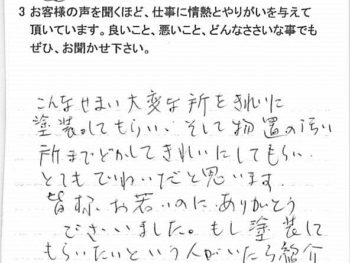 3 お客様の声を聞くほど、仕事に情熱とやりがいを与えて
頂いています。良いこと、悪いこと、どんなささいな事でも
ぜひ、お聞かせ下さい。
こんなせまい大変な所をきれいに
塗装してもらい、そして物置の汚い
所までどかしてきれいにしてもらい
とてもていねいだと思います。
皆様、お若いのに、ありがとう
ございました。もし塗装して
もらいたいという人がいたら紹介